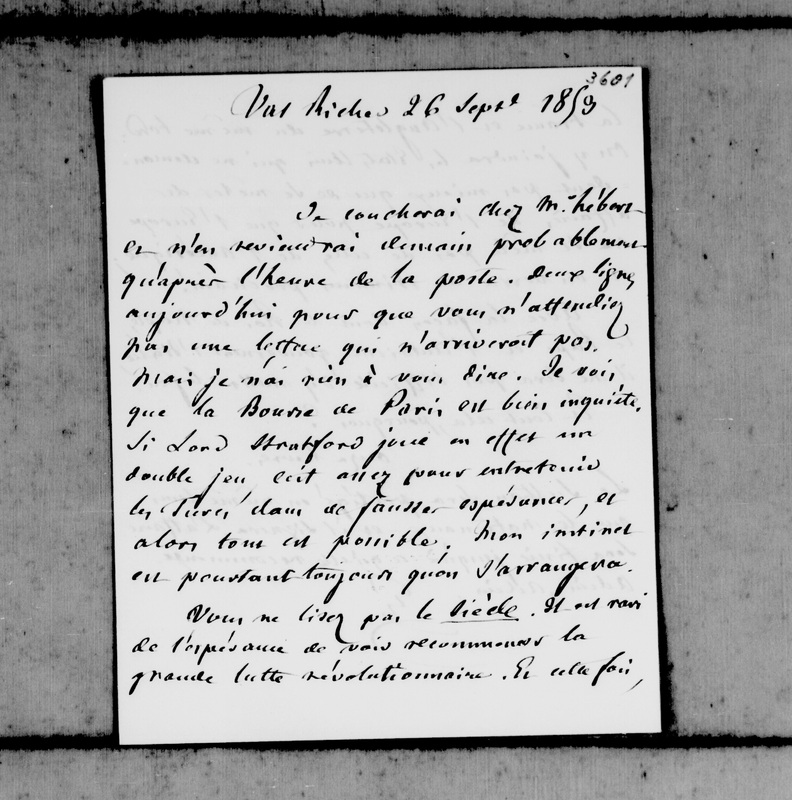 3601
Val Richer 26 Sept. 1853
Je coucherai chez Mr. hébert
et n'en reviendrai demain probablement
qu'après l'heure de la poste. Deux lignes
aujourd'hui pour que vous n'attendiez
pas une lettre qui n'arriverait pas.
Mais je n'ai rien à vous dire. Je vois
que la Bourse de Paris est bien inquiète.
Si Lord Stratford joue en effet un
double jeu, c'est assez pour entretenir
les Turcs dans de fausses espérances, et
alors tout est possible. Mon instinct
est pourtant toujours qu'on s'arrangera.
Vous ne lisez pas le Siècle. Il est ravi
de l'espérance de voir recommencer la
grande lutte révolutionnaire. Et cette fois,